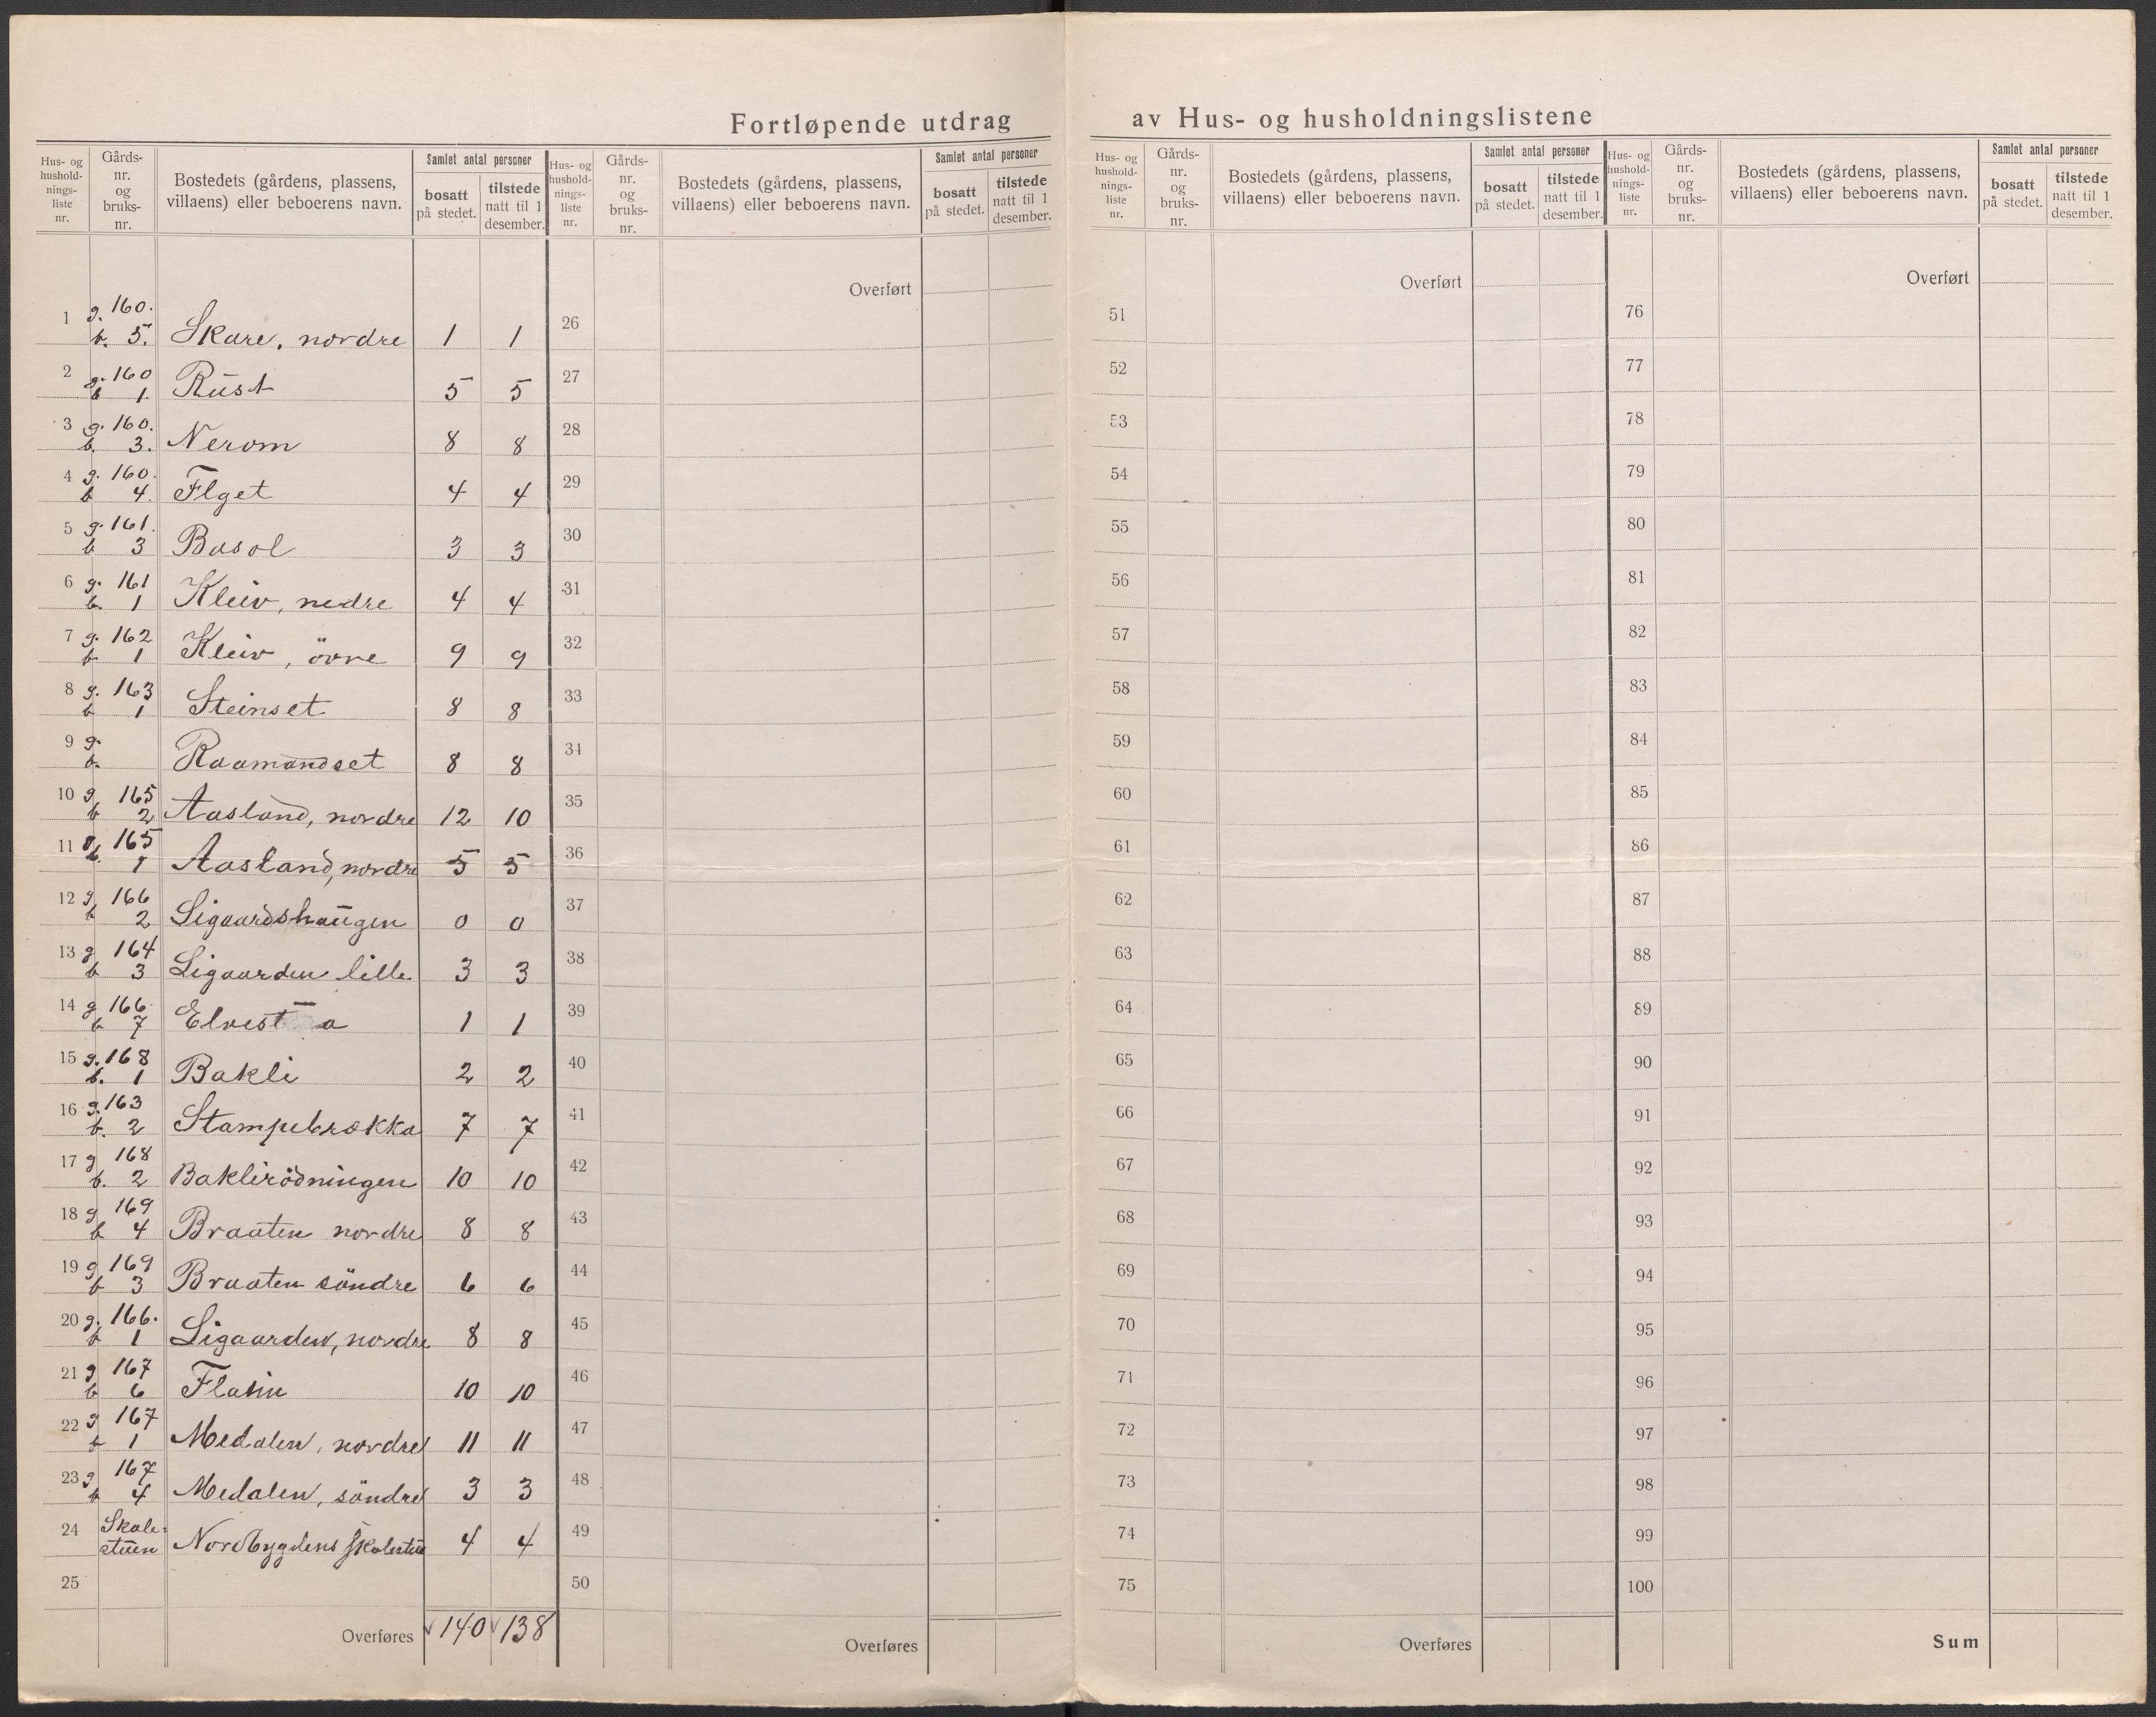 Fortløpende utdrag av Hus- og husholdningslistene
Hus- og hushold-nings-liste nr. Gårds-nr. og bruks-nr. Bostedets (gårdens, plassens, villaens) eller beboerens navn. Samlet antal personer bosatt på stedet. tilstede natt til 1 desember.
Hus- og hushold-nings-liste nr. Gårds-nr. og bruks-nr. Bostedets (gårdens, plassens, villaens) eller beboerens navn. Samlet antal personer bosatt på stedet. tilstede natt til 1 desember.
Hus- og hushold-nings-liste nr. Gårds-nr. og bruks-nr. Bostedets (gårdens, plassens, villaens) eller beboerens navn. Samlet antal personer bosatt på stedet. tilstede natt til 1 desember.
Hus- og hushold-nings-liste nr. Gårds-nr. og bruks-nr. Bostedets (gårdens, plassens, villaens) eller beboerens navn. Samlet antal personer bosatt på stedet. tilstede natt til 1 desember.
Overført Overført Overført
1 g. 160. b. 5. Skare, nordre 1 1 26 51 76
2 g. 160 b 1. Rust 5 5 27 52 77
3 g. 160. b. 3. Nerom 8 8 28 53 78
4 g. 160. b 4. Flget 4 4 29 54 79
5 g. 161. b 3 Basol 3 3 30 55 80
6 g. 161 b. 1 Kleiv, nedre 4 4 31 56 81
7 g. 162 b 1 Kleiv, övre 9 9 32 57 82
8 g. 163 b 1 Steinset 8 8 33 58 83
9 g. b. Raamundset 8 8 34 59 84
10 g 165 b 2 Aasland, nordre 12 10 35 60 85
11 g 165 b. 1 Aasland, nordre 5 5 36 61 86
12 g 166 b 2 Ligaardshaugen 0 0 37 62 87
13 g 164 b 3 Ligaarden lille 3 3 38 63 88
14 g 166 b 7 1 1 39 64 89
15 g. 168 b. 1 Bakli 2 2 40 65 90
16 g. 163 b. 2 Stampebrækka 7 7 41 66 91
17 g 168 b. 2 Baklirödningen 10 10 42 67 92
18 g 169 b 4 Braaten nordre 8 8 43 68 93
19 g 169 b 3 Braaten söndre 6 6 44 69 94
20 g. 166. b 1 Ligaarden, nordre 8 8 45 70 95
21 g 167 b 6 Flatin 10 10 46 71 96
22 g 167 b 1 Medalen, nordre 11 11 47 72 97
23 g 167 b 4 Medalen, söndre 3 3 48 73 98
24 Skole-stuen Nordbygdens skolestue 4 4 49 74 99
25 50 75 100
Overføres 140 138 Overføres Overføres Sum